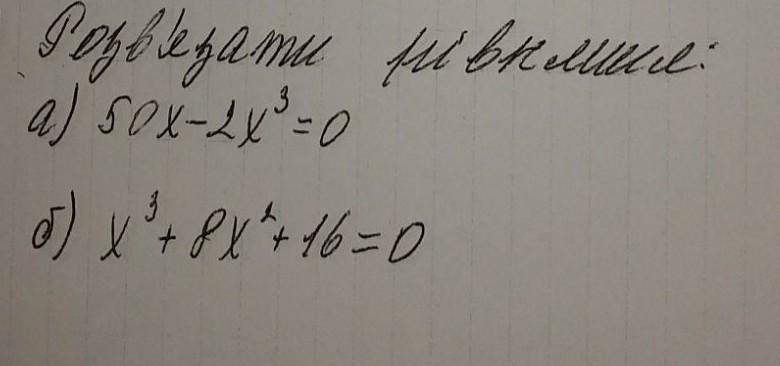 Розв'язати рівняння:
а) 50x-2x³=0
б) x³+8x²+16=0